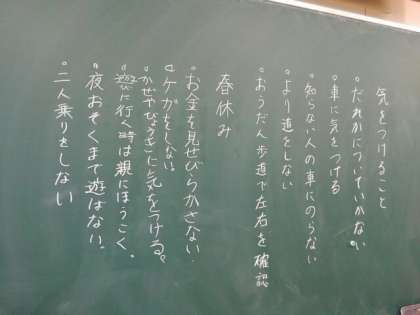 気をつけること
・だれかについていかない
・車に気をつける
・知らない人の車にのらない
・より道をしない
・おうだん歩道で左右を確認
春休み
・お金を見せびらかさない。
・ケガをしない。
・かぜやびょうきに気をつける。
・遊びに行く時は親にほうこく。
・夜おそくまで遊ばない。
・二人乗りをしない